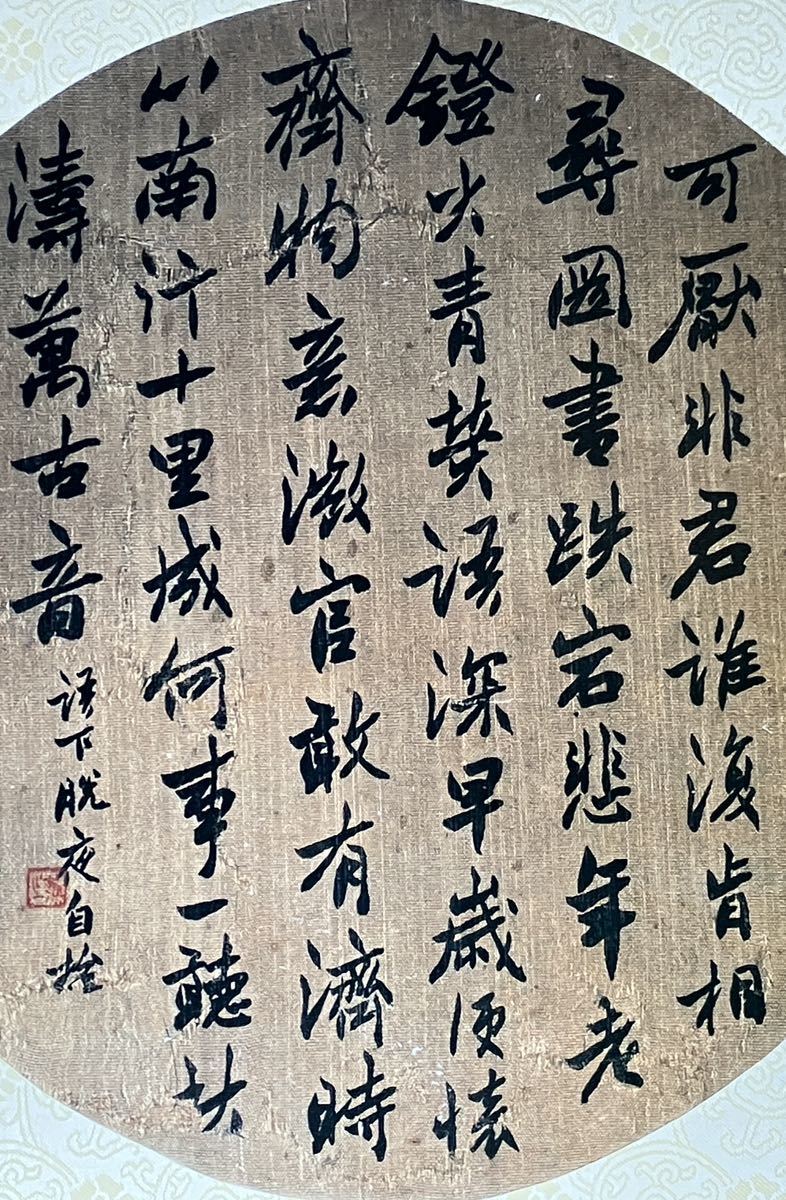 可厭非君誰復肯相
尋圖書跌宕悲年老
鐙火青熒語深早歲便懷
齊物意微官敢有濟時
心南行十里成何事一聽秋
濤萬古音
夜自